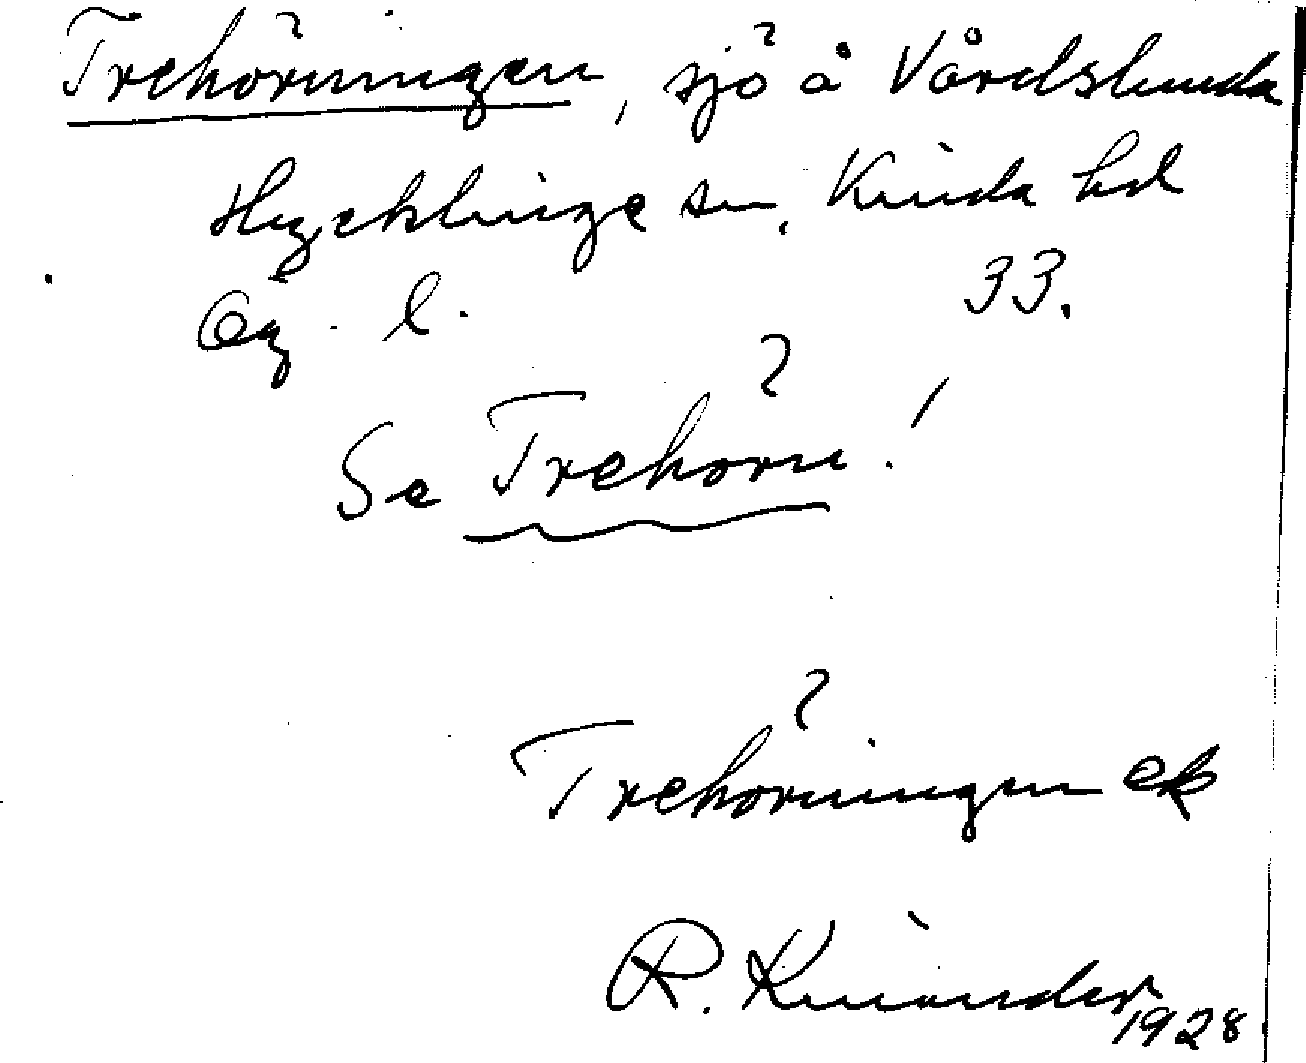 Trehörningen, sjö å Vårdslunda
Hycklinge sn, Kinda hd
Ög. l. 33.
Se Trehörn!
Trehörningen ek
R. Kinander 1928